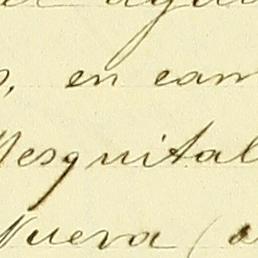 s, en cam
Mesquital
Nueva (a